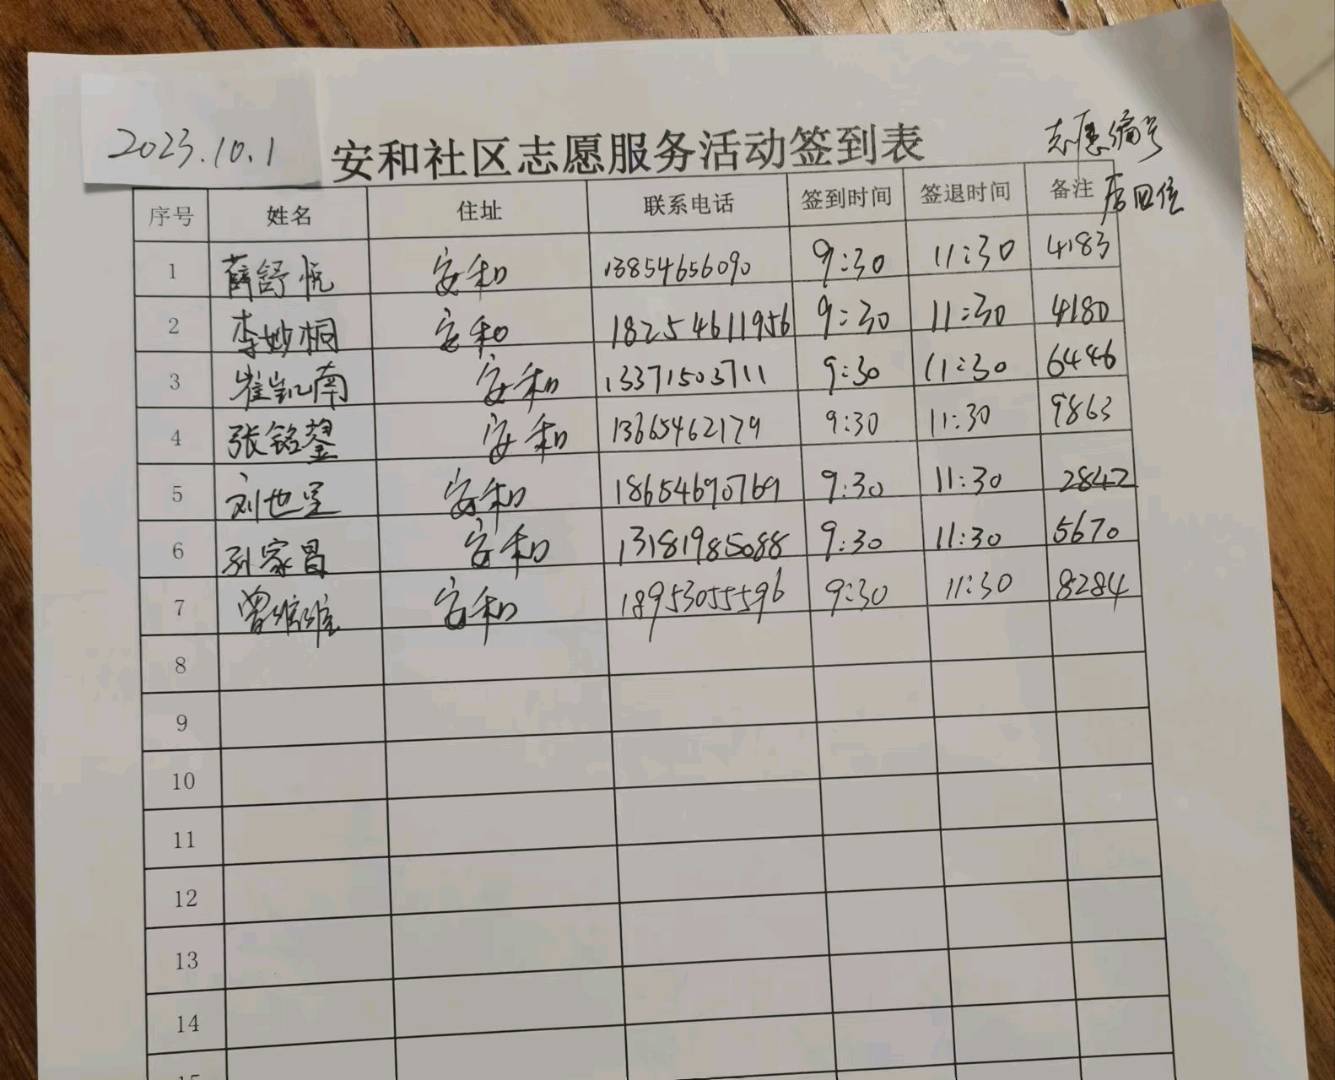 2023.10.1
安和社区志愿服务活动签到表
志愿编号
后四位
序号 姓名 住址 联系电话 签到时间 签退时间 备注
1 薛舒悦 安和 13854656090 9:30 11:30 4183
2 李妙桐 安和 18254611956 9:30 11:30 4180
3 崔凯南 安和 13371503711 9:30 11:30 6446
4 张铭鋆 安和 13665462179 9:30 11:30 9863
5 安和 18654690769 9:30 11:30 2842
6 孙家昌 安和 13181985088 9:30 11:30 5670
7 曾维维 安和 18953055596 9:30 11:30 8284
8
9
10
11
12
13
14
15